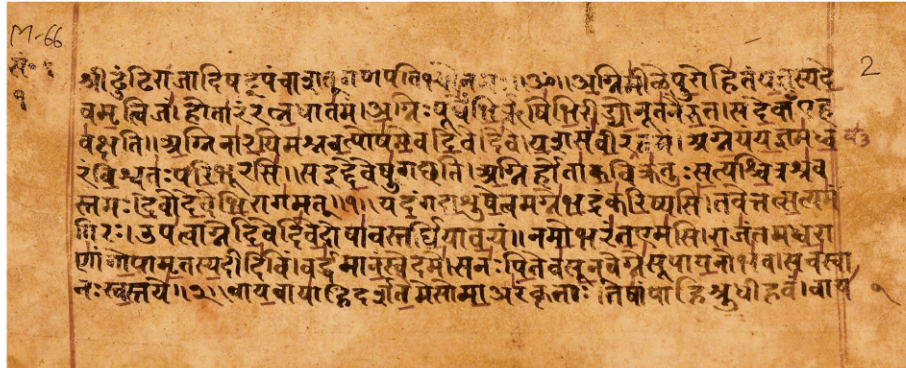 M-66
श्रीढुंढिराजादिषट्पंचाशत्गणपतिभ्योनमः॥ॐ॥अग्निमीळेपुरोहितंयज्ञस्यदे
2
१
वमृत्विजं।होतारंरत्नधातमं।अग्निःपूर्वेभिर्ऋषिभिरीड्योनूतनैरुत।सदेवाँएह
वक्षति॥अग्निनारयिमश्नवत्पोषमेवदिवेदिवे।यशसंवीरवत्तमं।अग्नेयंयज्ञमध्व
रंविश्वतःपरिभूरसि॥सइद्देवेषुगछति।अग्निर्होताकविक्रतुःसत्यश्चित्रश्रव
स्तमः।देवोदेवेभिरागमत्॥१॥यदंगदाशुषेत्वमग्नेभद्रंकरिष्यसि।तवेत्तत्सत्यमं
गिरः।उपत्वाग्नेदिवेदिवेदोषावस्तर्धियावयं॥नमोभरंतएमसि।राजंतमध्वरा
णांगोपामृतस्यदीदिविं।वर्द्धमानंस्वेदमे।सनःपितेवसूनवेग्नेसूपायनोभव।सचस्वा
नःस्वस्तये॥२॥वायवायाहिदर्शतेमेसोमाअरंकृताः।तेषांपाहिश्रुधीहवं।वाय
१